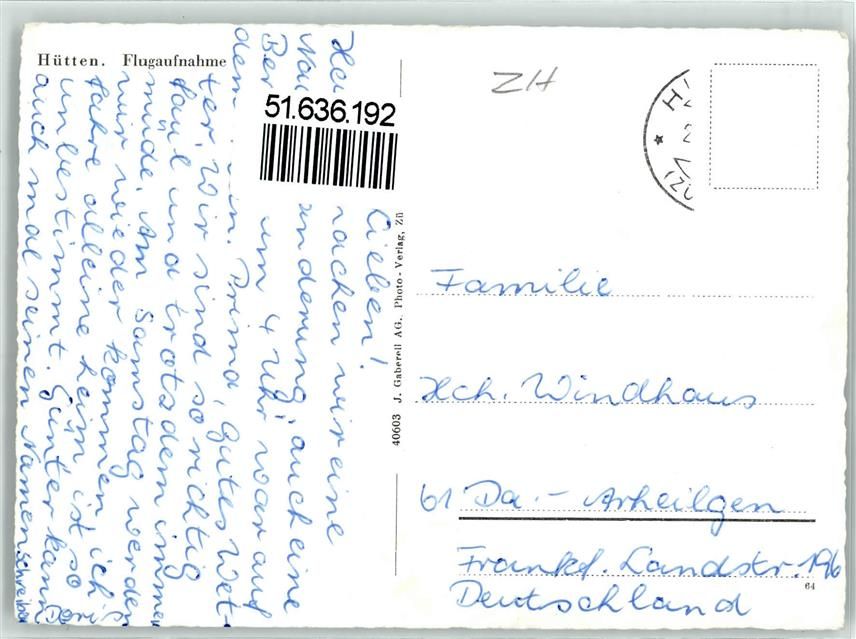 Hütten. Flugaufnahme
51.636.192
ZH
Lieben!
machen wir eine
Wanderung, auch eine
um 4 Uhr war auf
dem Prima, gutes Wet-
ter. Wir sind so richtig
faul und trotzdem immer
müde. Am Samstag werden
wir wieder kommen ich
fahre alleine heim, ist so
unbestimmt. Günter kann
auch mal seinen Namen schreiben
40603 J. Gaberell AG., Photo-Verlag, Zü
Familie
Hch. Windhaus
61 Da.- Arheilgen
Frankf. Landstr. 196
Deutschland
64